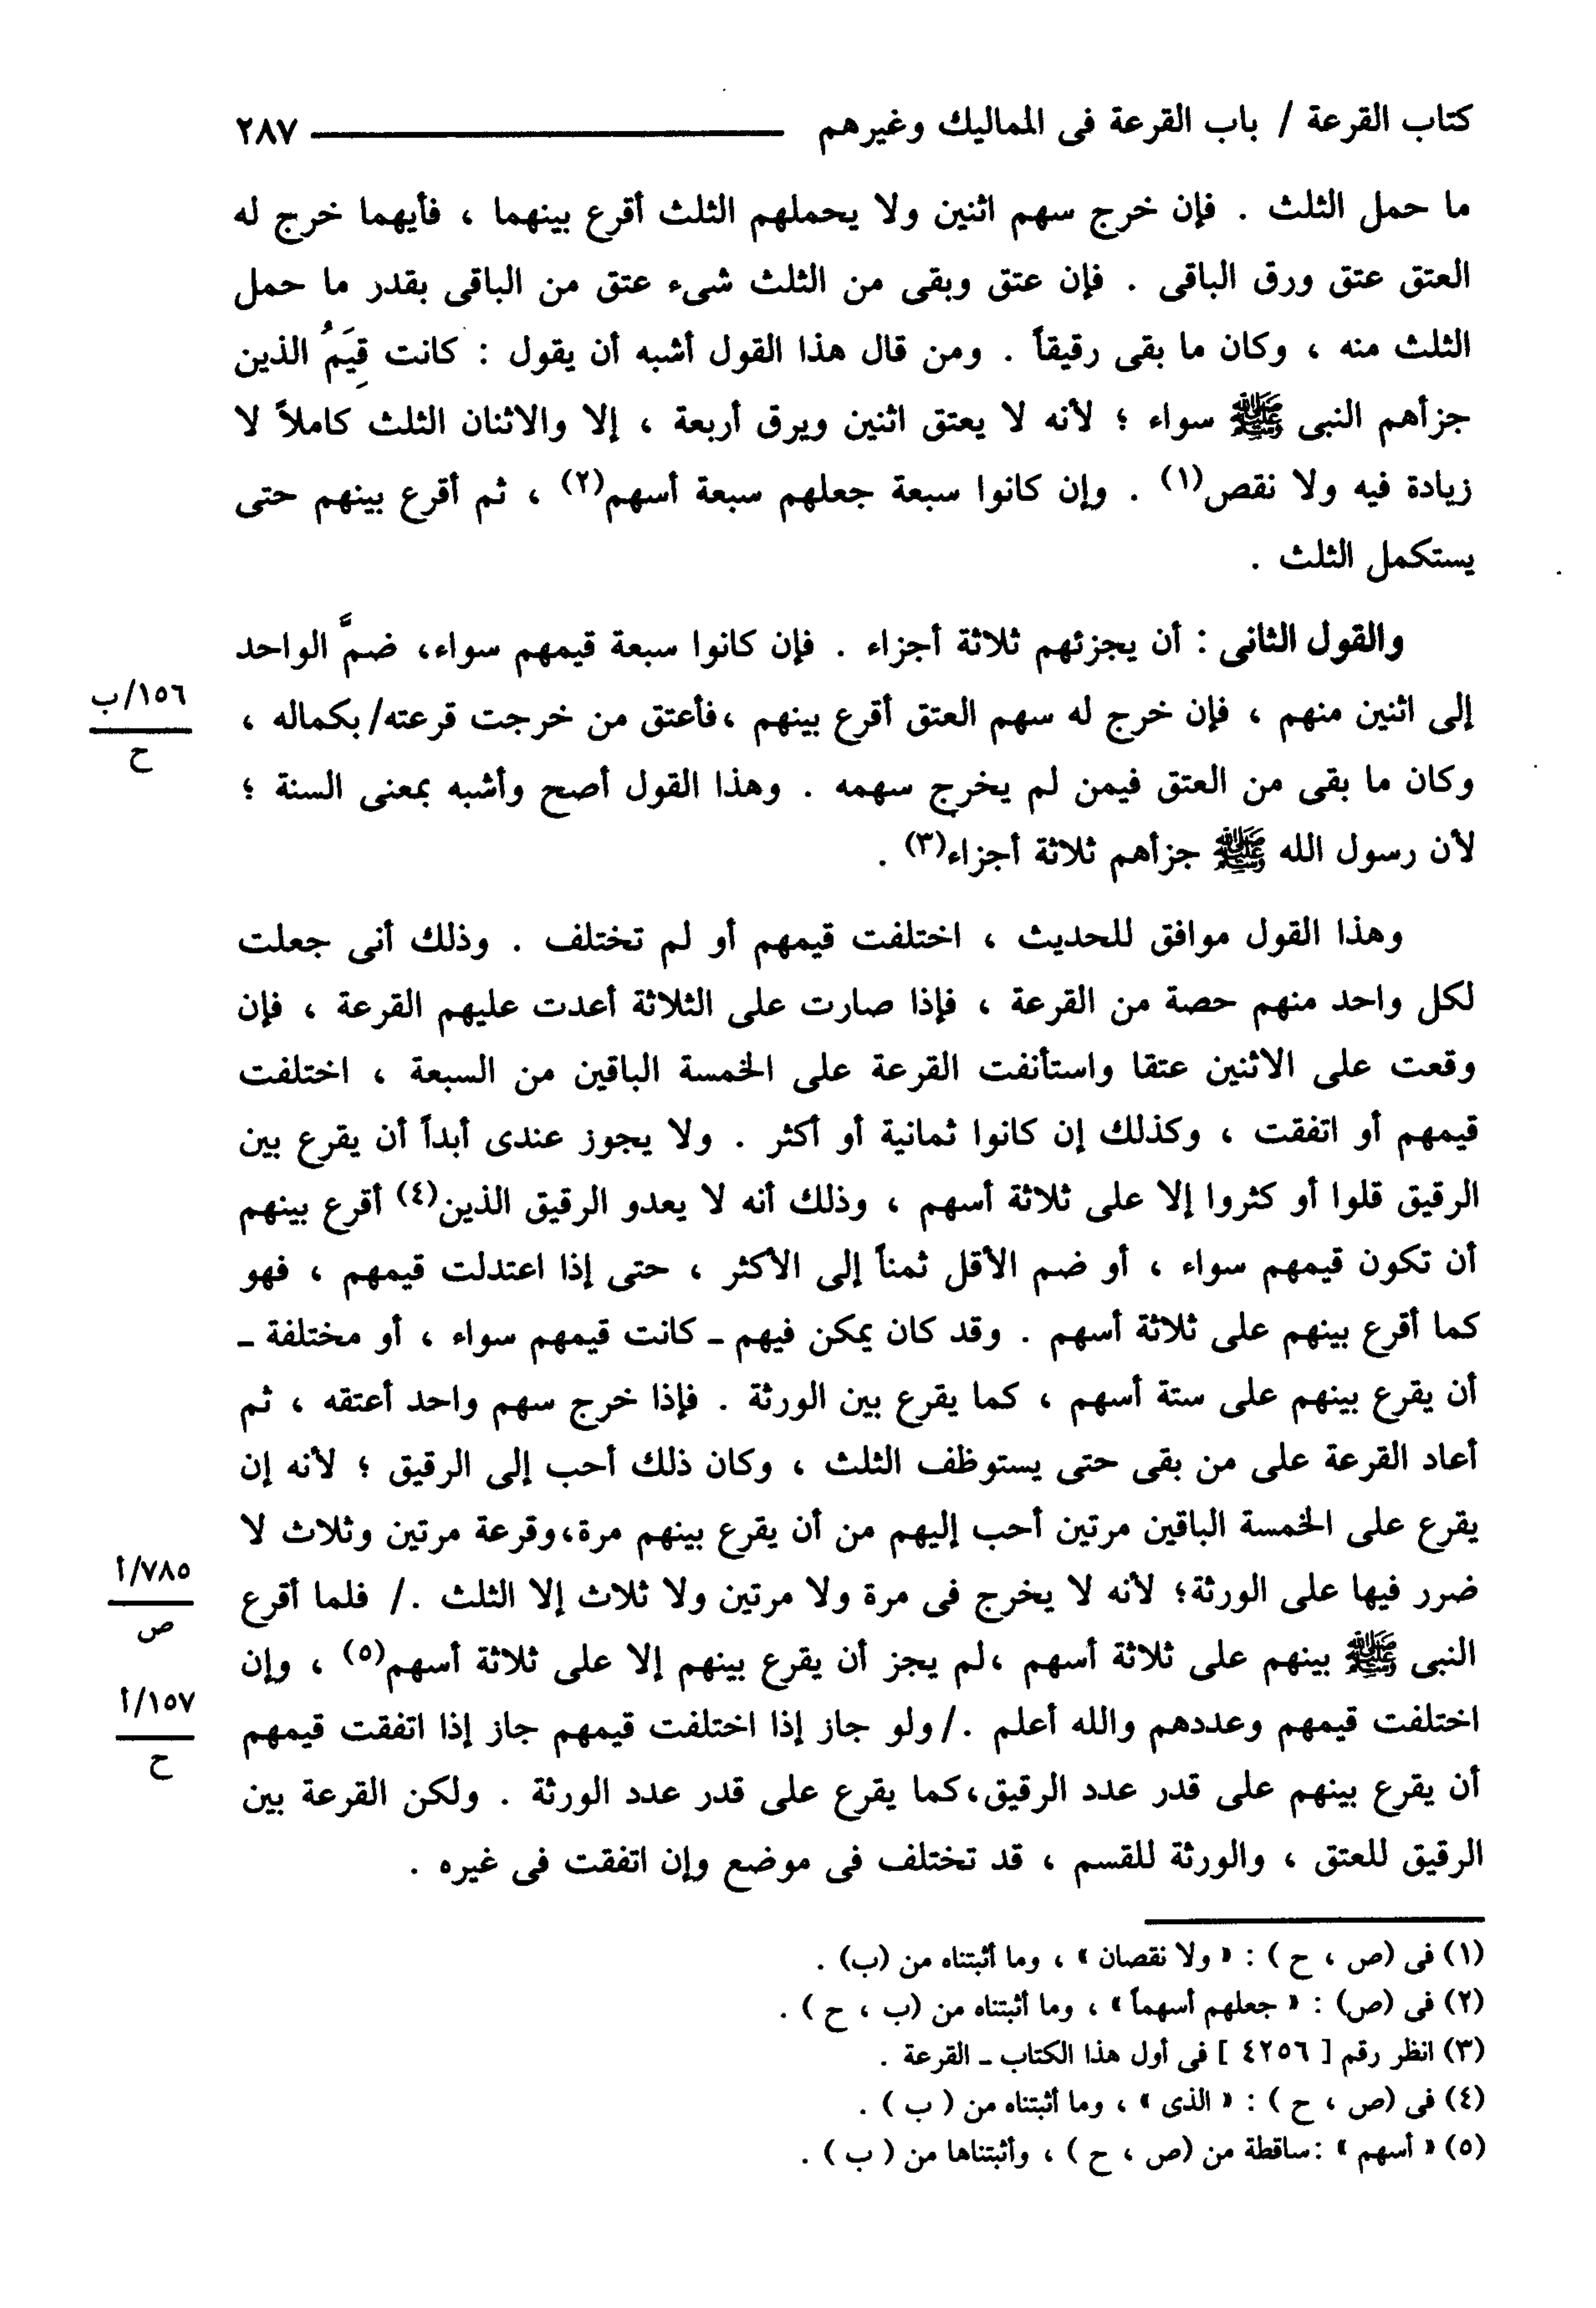 كتاب القرعة / باب القرعة فى المماليك وغيرهم ٢٨٧
ما حمل الثلث . فإن خرج سهم اثنين ولا يحملهم الثلث أقرع بينهما ، فأيهما خرج له
العتق عتق ورق الباقى . فإن عتق وبقى من الثلث شىء عتق من الباقى بقدر ما حمل
الثلث منه ، وكان ما بقى رقيقاً . ومن قال هذا القول أشبه أن يقول : كانت قِيَمُ الذين
جزأهم النبى ﷺ سواء ؛ لأنه لا يعتق اثنين ويرق أربعة ، إلا والاثنان الثلث كاملاً لا
زيادة فيه ولا نقص(١) . وإن كانوا سبعة جعلهم سبعة أسهم(٢) ، ثم أقرع بينهم حتى
يستكمل الثلث .
والقول الثانى : أن يجزئهم ثلاثة أجزاء . فإن كانوا سبعة قيمهم سواء، ضمَّ الواحد
إلى اثنين منهم ، فإن خرج له سهم العتق أقرع بينهم ،فأعتق من خرجت قرعته/ بكماله ،
١٥٦/ب
ح
وكان ما بقى من العتق فيمن لم يخرج سهمه . وهذا القول أصح وأشبه بمعنى السنة ؛
لأن رسول الله ﷺ جزأهم ثلاثة أجزاء(٣) .
وهذا القول موافق للحديث ، اختلفت قيمهم أو لم تختلف . وذلك أنى جعلت
لكل واحد منهم حصة من القرعة ، فإذا صارت على الثلاثة أعدت عليهم القرعة ، فإن
وقعت على الاثنين عتقا واستأنفت القرعة على الخمسة الباقين من السبعة ، اختلفت
قيمهم أو اتفقت ، وكذلك إن كانوا ثمانية أو أكثر . ولا يجوز عندى أبداً أن يقرع بين
الرقيق قلوا أو كثروا إلا على ثلاثة أسهم ، وذلك أنه لا يعدو الرقيق الذين(٤) أقرع بينهم
أن تكون قيمهم سواء ، أو ضم الأقل ثمناً إلى الأكثر ، حتى إذا اعتدلت قيمهم ، فهو
كما أقرع بينهم على ثلاثة أسهم . وقد كان يمكن فيهم ـ كانت قيمهم سواء ، أو مختلفة ـ
أن يقرع بينهم على ستة أسهم ، كما يقرع بين الورثة . فإذا خرج سهم واحد أعتقه ، ثم
أعاد القرعة على من بقى حتى يستوظف الثلث ، وكان ذلك أحب إلى الرقيق ؛ لأنه إن
يقرع على الخمسة الباقين مرتين أحب إليهم من أن يقرع بينهم مرة،وقرعة مرتين وثلاث لا
ضرر فيها على الورثة؛ لأنه لا يخرج فى مرة ولا مرتين ولا ثلاث إلا الثلث ./ فلما أقرع
٧٨٥/أ
ص
النبى ﷺ بينهم على ثلاثة أسهم ،لم يجز أن يقرع بينهم إلا على ثلاثة أسهم(٥) ، وإن
اختلفت قيمهم وعددهم والله أعلم ./ولو جاز إذا اختلفت قيمهم جاز إذا اتفقت قيمهم
١٥٧/أ
ح
أن يقرع بينهم على قدر عدد الرقيق،كما يقرع على قدر عدد الورثة . ولكن القرعة بين
الرقيق للعتق ، والورثة للقسم ، قد تختلف فى موضع وإن اتفقت فى غيره .
(١) فى (ص ، ح ) : « ولا نقصان » ، وما أثبتناه من (ب) .
(٢) فى (ص) : « جعلهم أسهماً » ، وما أثبتناه من (ب ، ح ) .
(٣) انظر رقم [ ٤٢٥٦ ] فى أول هذا الكتاب ـ القرعة .
(٤) فى (ص ، ح ) : « الذى » ، وما أثبتناه من ( ب ) .
(٥) « أسهم » :ساقطة من (ص ، ح ) ، وأثبتناها من ( ب ) .